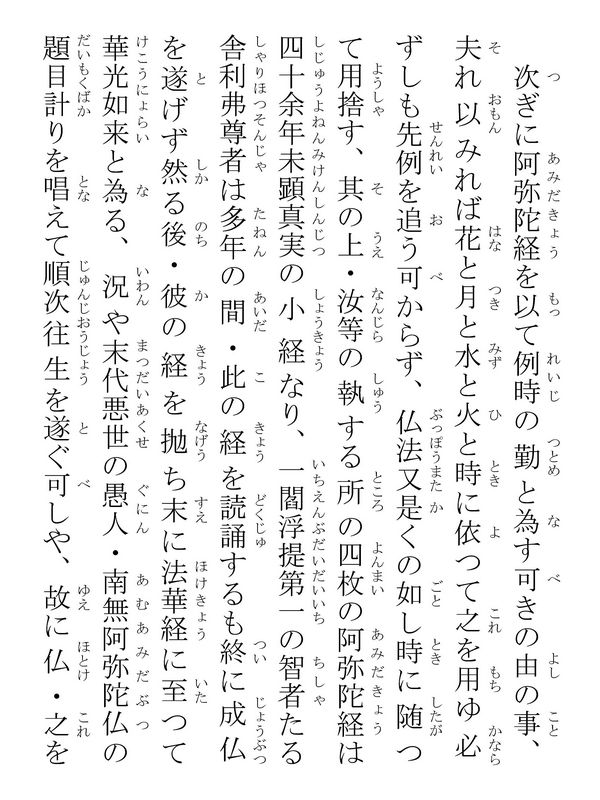 次ぎに阿弥陀経を以て例時の勤と為す可きの由の事、
夫れ以みれば花と月と水と火と時に依つて之を用ゆ必
ずしも先例を追う可からず、仏法又是くの如し時に随つ
て用捨す、其の上・汝等の執する所の四枚の阿弥陀経は
四十余年未顕真実の小経なり、一閻浮提第一の智者たる
舎利弗尊者は多年の間・此の経を読誦するも終に成仏
を遂げず然る後・彼の経を抛ち末に法華経に至つて
華光如来と為る、況や末代悪世の愚人・南無阿弥陀仏の
題目計りを唱えて順次往生を遂ぐ可しや、故に仏・之を